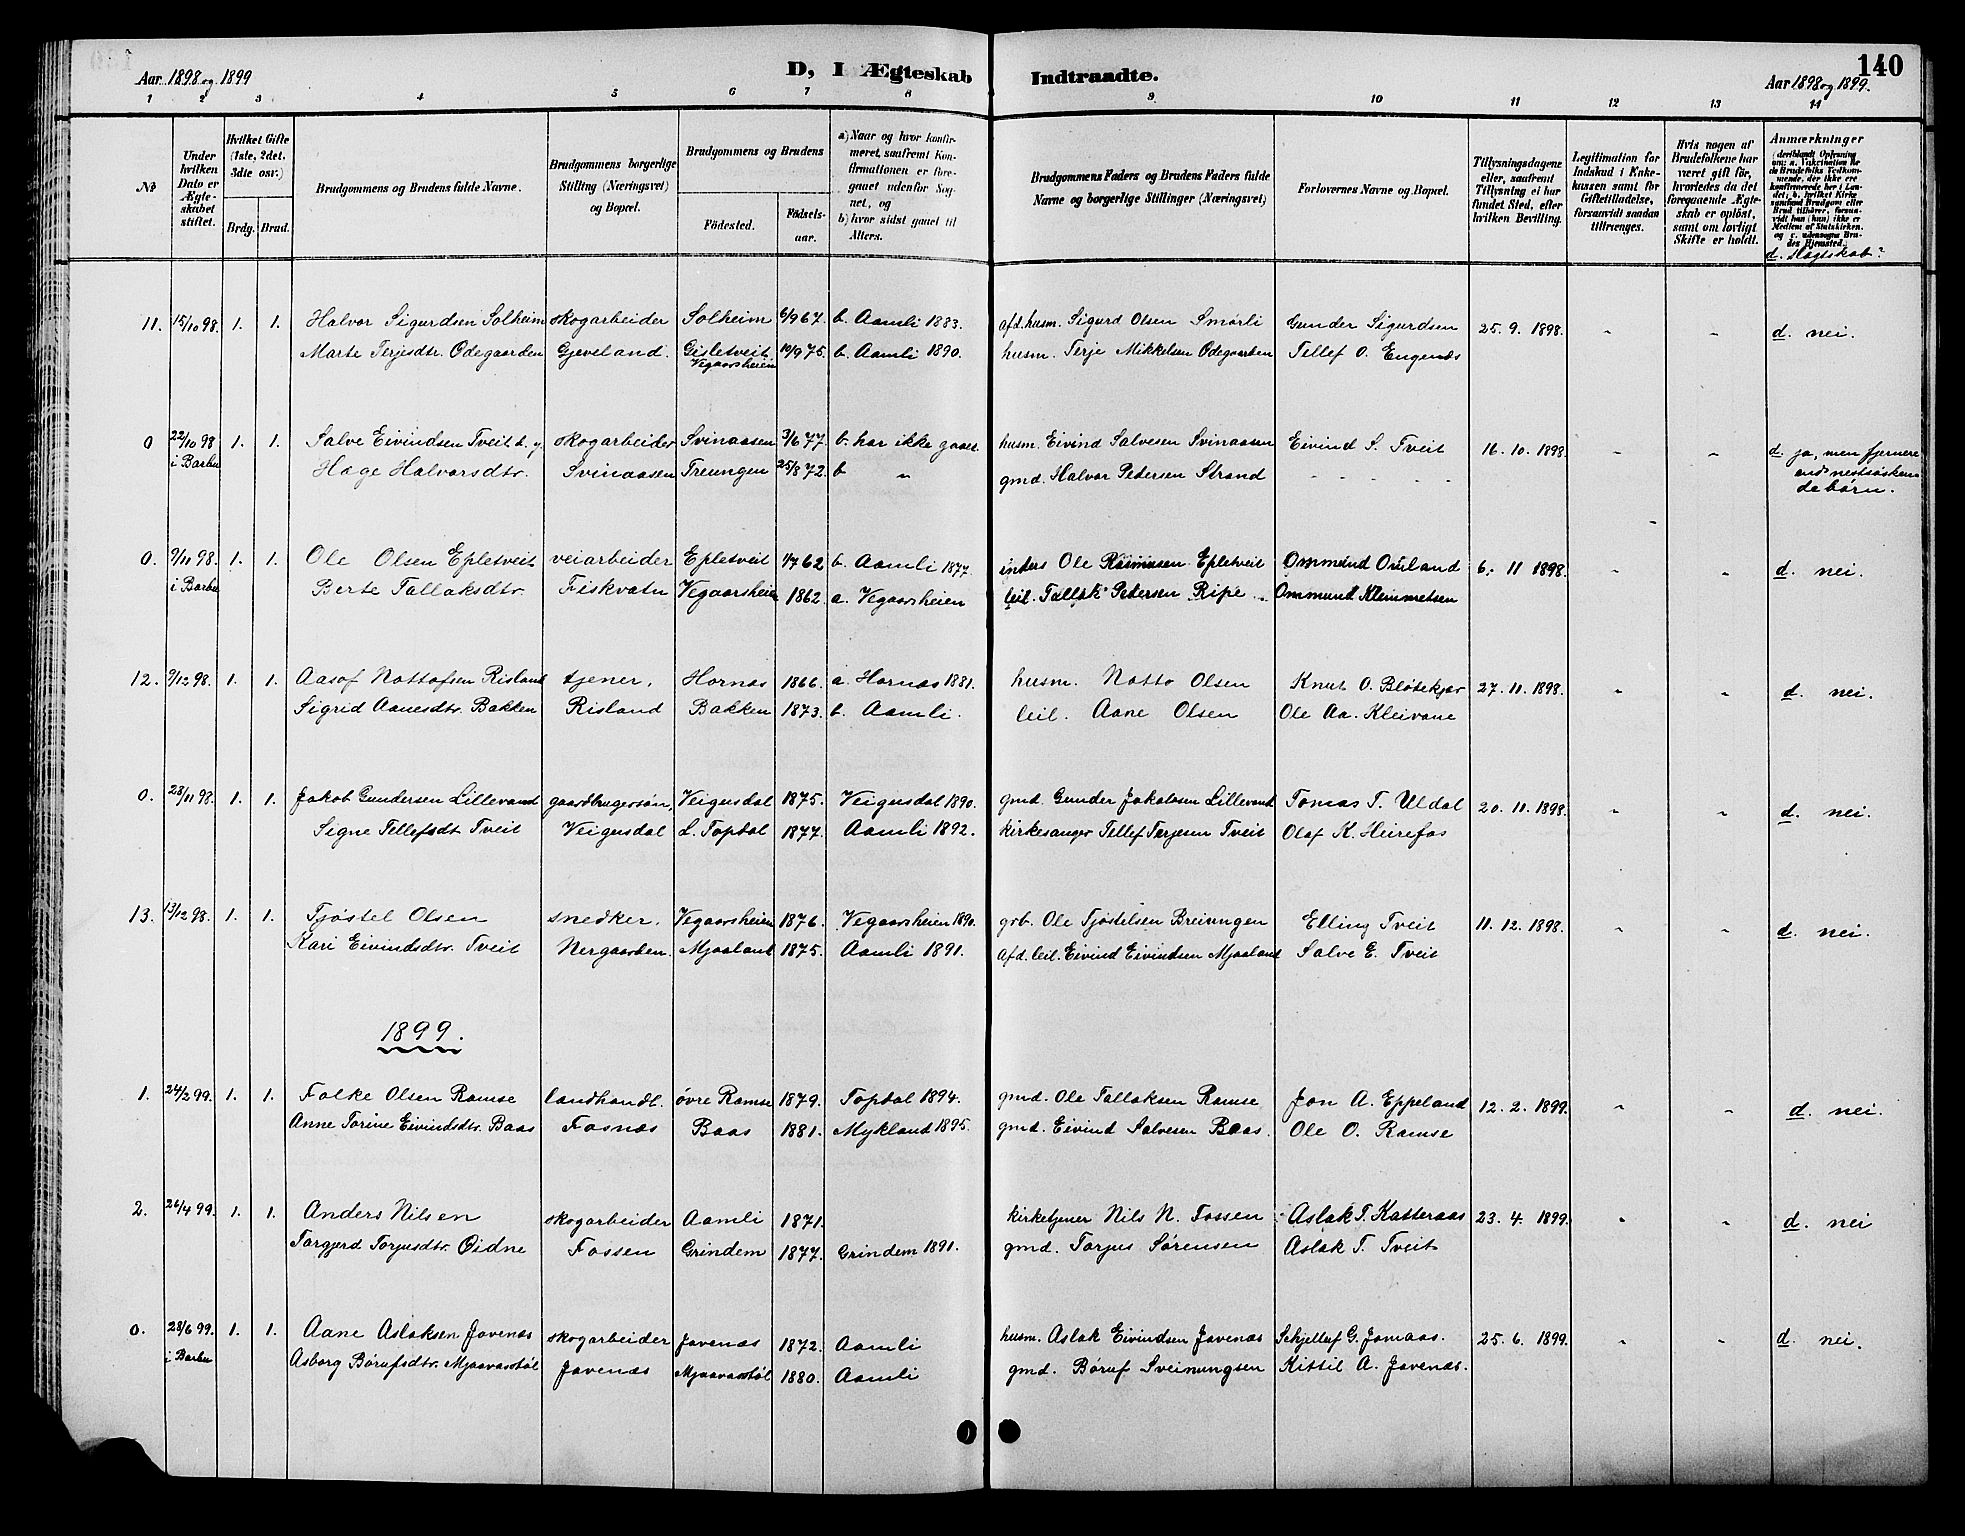 140
Aar 1898 og 1899
D, I Ægteskab Indtraadte.
Aar 1898 og 1899.
1 2 3 4 5 6 7 8 9 10 11 12 13 14
No
Under hvilken Dato er Ægteskabet stiftet.
Hvilket Gifte (1ste, 2det, 3dte osv.)
Brdg. Brud.
Brudgommens og Brudens fulde Navne.
Brudgommens borgerlige Stilling (Næringsvei) og Bopæl.
Brudgommens og Brudens
Fødested.
Fødselsaar.
a) Naar og hvor konfirmeret, saafremt Konfirmationen er foregaaet udenfor Sognet, og
b) hvor sidst gaaet til Alters.
Brudgommens Faders og Brudens Faders fulde Navne og borgerlige Stillinger (Næringsvei)
Forlovernes Navne og Bopæl.
Tillysningsdagene eller, saafremt Tillysning ei har fundet Sted, efter hvilken Bevilling.
Legitimation for Indskud i Enkekassen samt for Giftetilladelse, forsaavidt saadan tiltrænges.
Hvis nogen af Brudefolkene har været gift før, hvorledes da det foregaaende Ægteskab er opløst, samt om lovligt Skifte er holdt.
Anmærkninger
d. Slægtskab?
11. 15/10 98. 1. 1. Halvor Sigurdsen Solheim skogarbeider Solheim 6/9 67. b. Aamli 1883. afd. husm. Sigurd Olsen Smørli Gunder Sigurdsen 25. 9. 1898. " " d. nei.
Marte Terjesdtr. Ødegaarden Gjeveland. Gisletveit, Vegaarsheien 10/9 75. b. Aamli 1890. husm. Terje Mikkelsen Ødegaarden Tellef O. Engenæs
0 22/10 98 i Barbu 1. 1. Salve Eivindsen Tveit d. y. skogarbeider Svinaasen 3/6 77. b. har ikke gaaet. husm. Eivind Salvesen Svinaasen Eivind S. Tveit 16. 10. 1898. " " d. ja, men fjernere end nestsøskendebørn.
Hæge Halvorsdtr. Svinaasen Treungen 25/8 72. b " gmd. Halvor Pedersen Strand - - - - -
0. 9/11 98. i Barbu 1. 1. Ole Olsen Epletveit veiarbeider Epletveit 1/7 62 b. Aamli 1877. inders Ole Rasmusen Epletveit Ommund Ovland 6. 11 1898. " " d. nei.
Berte Tallaksdtr. Fiskvatn Vegaarsheien 1862. a. Vegaarsheien leil. Tallak Pedersen Ripe Ommund Klemmetsen
12. 9/12 98. 1. 1. Aasof Nottofsen Risland tjener, Hornæs 1866. a. Hornæs 1881. husm. Notto Olsen Knut O. Bløtekjær 27. 11. 1898. " " d. nei.
Sigrid Aanesdtr. Bakken Risland Bakken 1873. b. Aamli. leil. Aane Olsen Ole Aa. Kleivane
0. 28/11 98. 1. 1. Jakob Gundersen Lillevand gaardbrugersøn, Veigusdal 1875. Veigusdal 1890. gmd. Gunder Jakobsen Lillevand Tomas T. Uldal 20. 11. 1898. " " d. nei.
Signe Tellefsdt Tveit Veigusdal L. Topdal 1877. Aamli 1892. kirkesanger Tellef Terjesen Tveit Olaf K. Heirefos
13. 13/12 98. 1. 1. Tjøstel Olsen snedker, Vegaarsheien 1876. Vegaarsheien 1890. grb. Ole Tjøstelsen Breiungen Elling Tveit 11. 12. 1898. " " d. nei.
Kari Eivindsdtr. Tveit Nergaarden. Mjaaland 1875. Aamli 1891. afd. leil. Eivind Eivindsen Mjaaland Salve E. Tveit
1899.
1. 24/2 99. 1. 1. Folke Olsen Ramse landhandl. øvre Ramse 1879. Topdal 1894. gmd. Ole Tallaksen Ramse Jon A. Eppeland 12. 2. 1899. " " d. nei.
Anne Torine Eivindsdtr. Baas Fosnæs Baas 1881. Mykland 1895. gmd. Eivind Salvesen Baas. Ole O. Ramse
2. 26/4 99. 1. 1. Anders Nilsen skogarbeider Aamli 1871. kirketjener Nils N. Fossen Aslak T. Katteraas 23. 4. 1899. " " d. nei
Torgjerd Torjusdtr. Øidne Fossen Grindem 1877. Grindem 1891. gmd. Torjus Sørensen Aslak T. Tveit
0. 28/6 99. i Barbu 1. 1. Aane Aslaksen Jovenæs skogarbeider Jovenæs 1872. Aamli husm. Aslak Eivindsen Jovenæs Schjellef G. Jomaas. 25. 6. 1899. " " d. nei.
Asborg Børufsdtr. Mjaavasstøl Jovenæs Mjaavasstøl 1880. Aamli gmd. Børuf Sveinungsen Kittil A. Jovenæs.